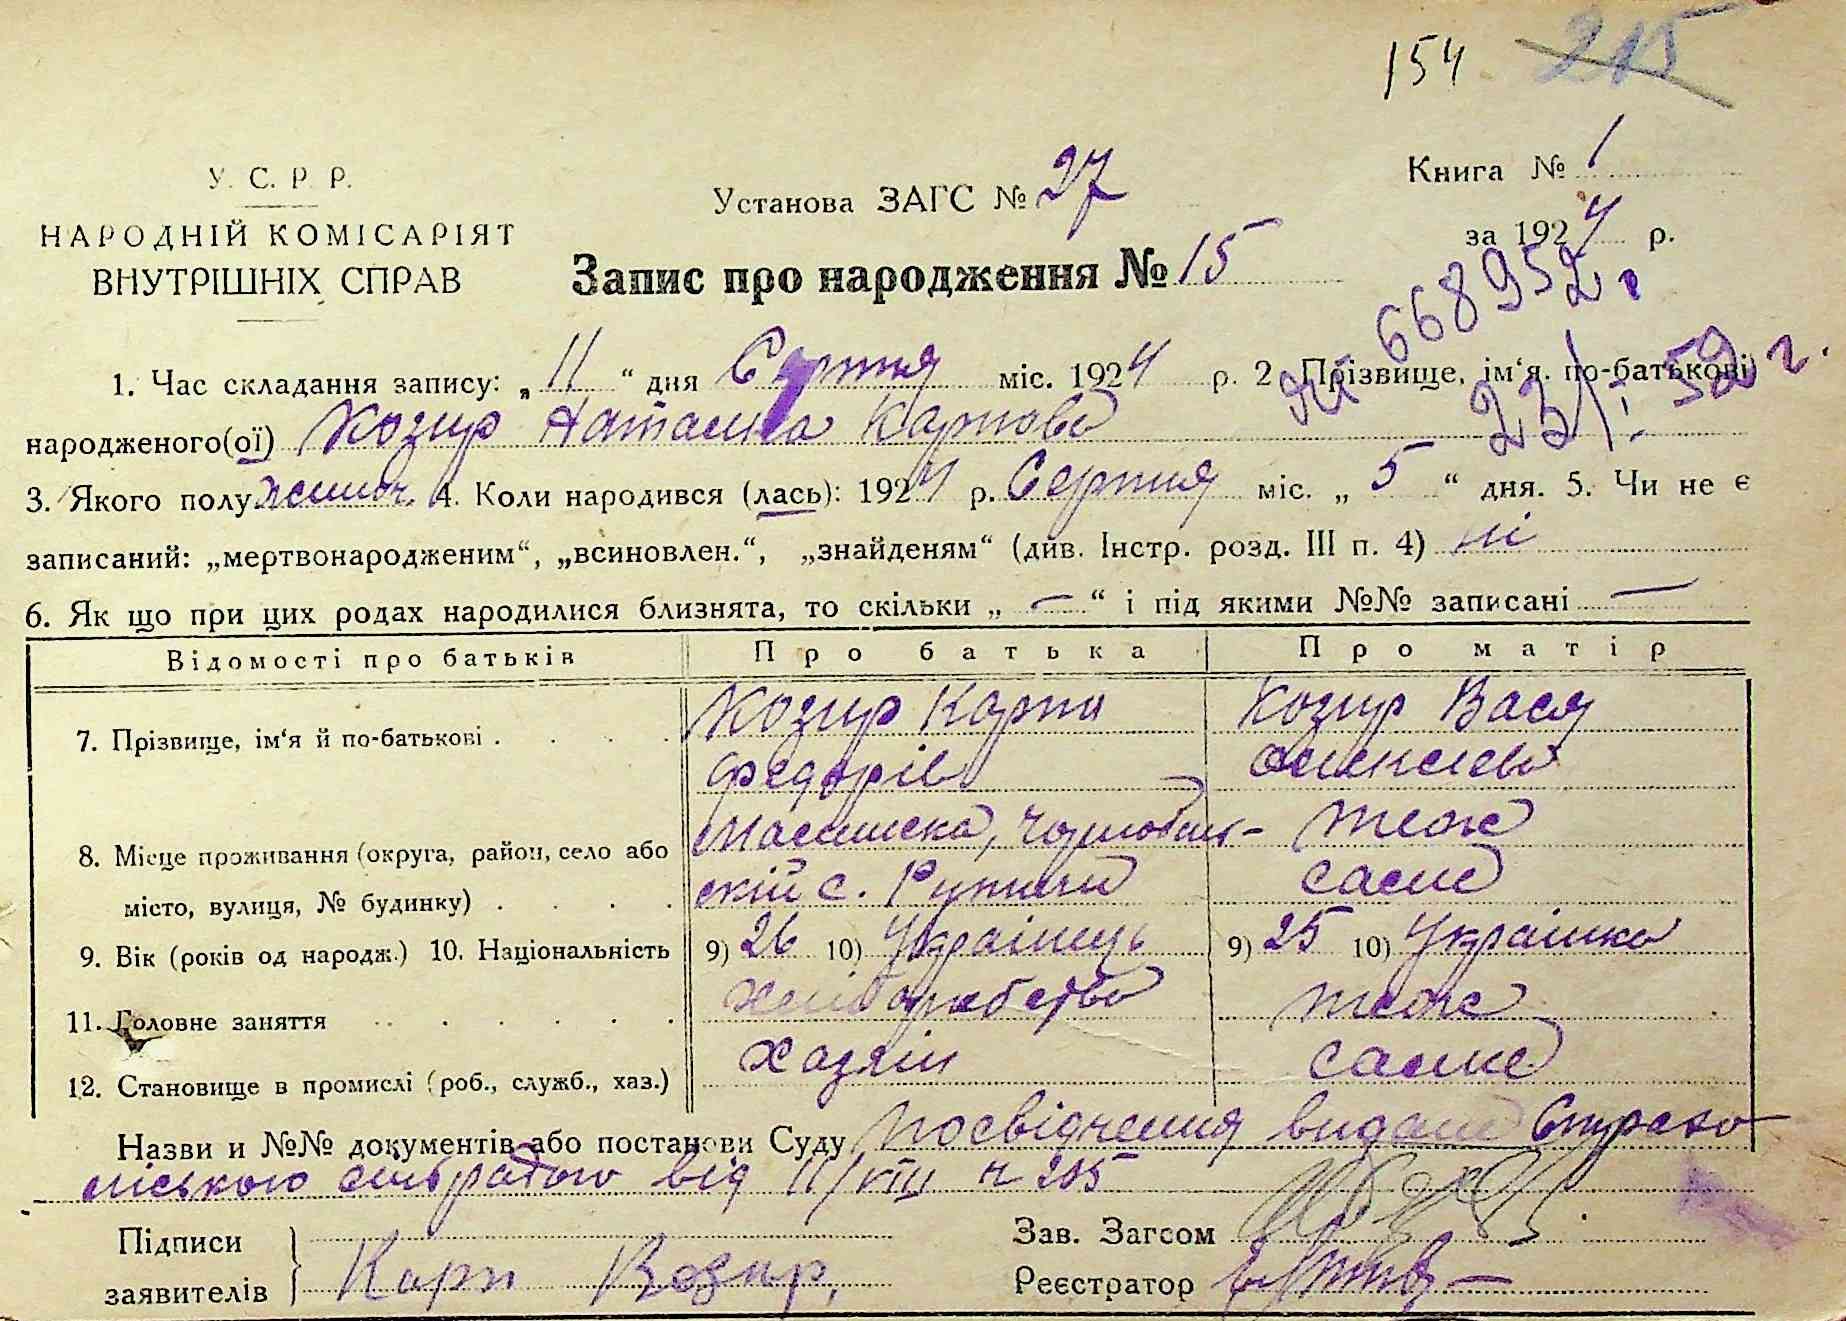 154 215
У. С. Р. Р.
НАРОДНІЙ КОМІСАРІЯТ
ВНУТРІШНІХ СПРАВ
Установа ЗАГС № 27
Книга № 1
за 1924 р.
Запис про народження № 15
668952
23/ 52 г.
1. Час складання запису: „ 11 “ дня Серпня міс. 1924 р. 2. Прізвище, ім‘я, по-батькові
народженого(ої) Козир Наталка Карпова
3. Якого полу жіноч. 4. Коли народився (лась): 1924 р. Серпня міс. „ 5 “ дня. 5. Чи не є
записаний: „мертвонародженим“, „всиновлен.“, „знайденям“ (див. Інстр. розд. III п. 4) ні
6. Як що при цих родах народилися близнята, то скільки „ — “ і під якими №№ записані —
Відомості про батьків Про батька Про матір
7. Прізвище, ім‘я й по-батькові . . . . Козир Карпи Козир Вася
Федорів
8. Місце проживання (округа, район, село або Чорнобиль- теж
місто, вулиця, № будинку) . . . . ский с. саме
9. Вік (років од народж.) 10. Національність 9) 26 10) Українець 9) 25 10) Українка
11. Головне заняття . . . . . . хліборобство теж
12. Становище в промислі (роб., служб., хаз.) Хазяін саме
Назви и №№ документів або постанови Суду Посвідчення видане
сільрадою від 11/VIII № 205
Підписи
заявителів Карп Козир,
Зав. Загсом
Реєстратор